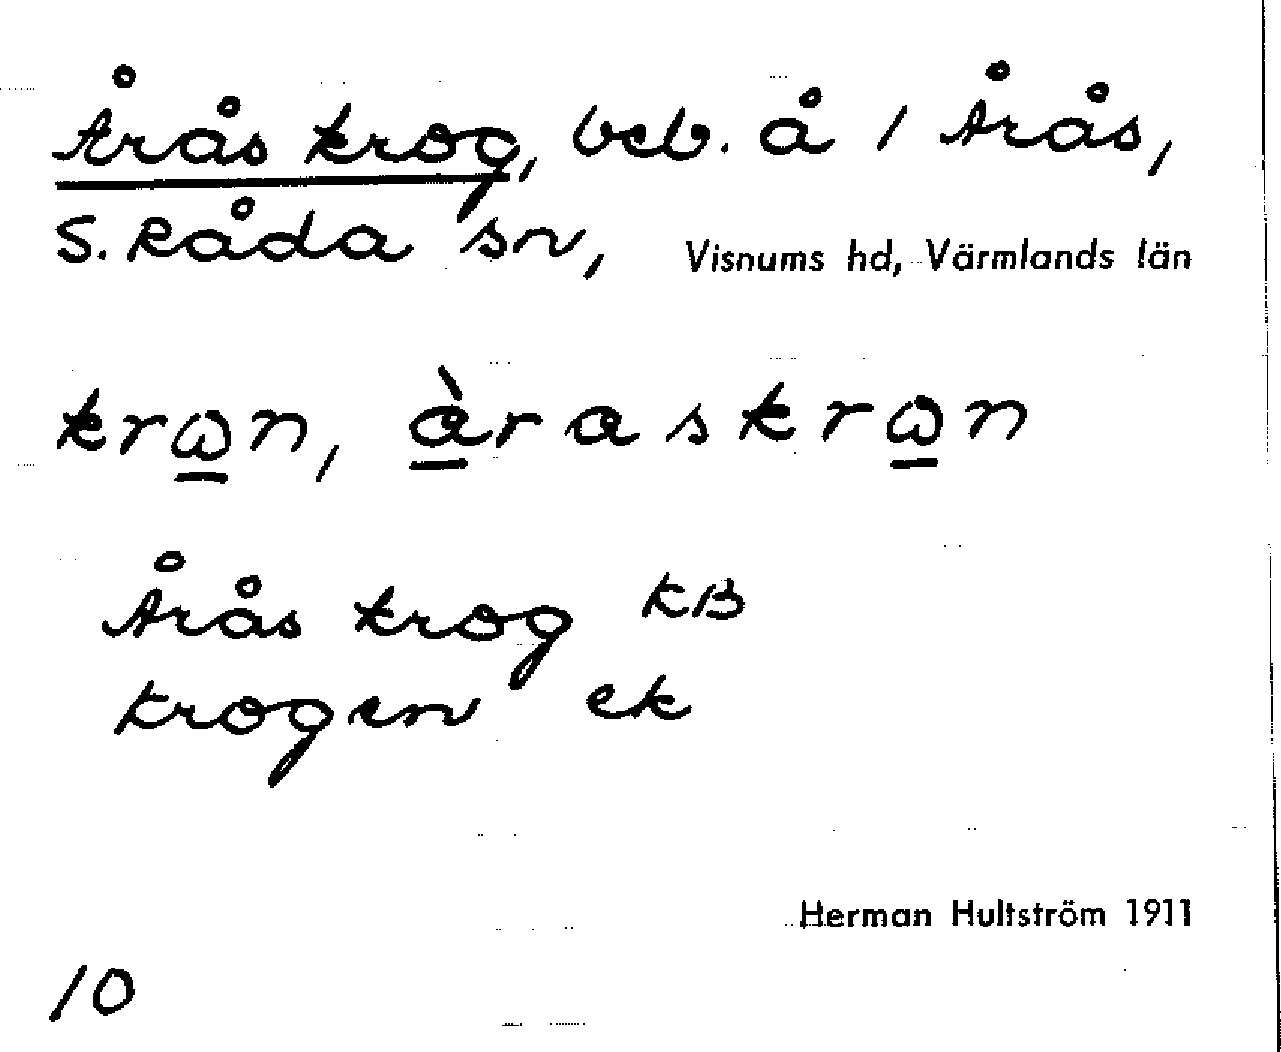 Årås krog, beb. å 1 Årås,
S. Råda sn, Visnums hd, Värmlands län
krω̲n, à̲raskrω̲n
Årås krog KB
krogen ek
Herman Hultström 1911
10